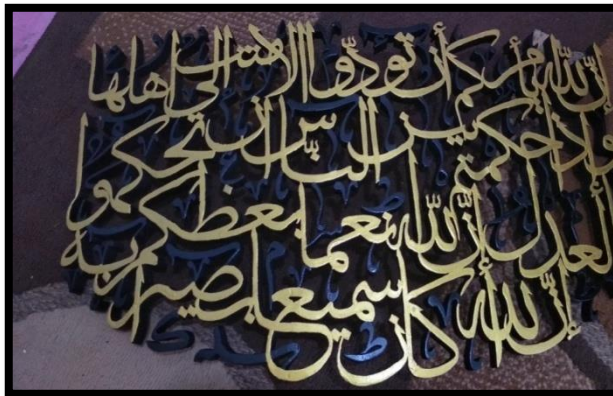 إن الله يأمركم أن تؤدوا الأمنت إلى أهلها
وإذا حكمتم بين الناس أن تحكموا
بالعدل إن الله نعما يعظكم به
إن الله كان سميعا بصيرا